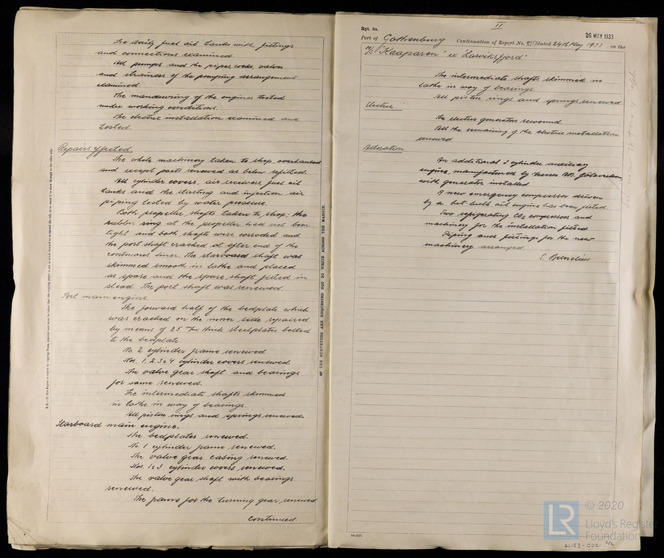 The daily fuel oil tanks with fittings
and connections examined.
All pumps and the pipes cocks valves
and strainers of the pumping arrangement
examined.
The manœuvring of the engines tested
under working conditions.
The electric installation examined and
tested.
Repairs effected.
The whole machinery taken to shop, overhauled
and several parts renewed as below refitted.
All cylinder covers, air receivers, fuel oil
tanks and the starting and injection air
piping tested by water pressure.
Both propeller shafts taken to shop; the
rubber ring at the propeller had not been
tight and both shafts were corroded and
the port shaft cracked at after end of the
continuous liner. The starboard shaft was
skimmed smooth in lathe and placed
as spare and the spare shaft fitted in
stead. The port shaft was renewed.
Port main engine
The forward half of the bedplate which
was cracked on the inner side repaired
by means of 25 thick steelplates bolted
to the bedplate
No 2 cylinder frame renewed
Nos. 1, 2, 3 & 4 cylinder covers renewed.
The valve gear shaft and bearings
for same renewed.
The intermediate shafts skimmed
in lathe in way of bearings.
All piston rings and springs renewed.
Starboard main engine.
The bedplates renewed.
No 1 cylinder frame renewed.
The valve gear casing renewed.
Nos 1 & 3 cylinder covers renewed.
The valve gear shaft with bearings
renewed.
The frame for the turning gear renewed
continued.
II
Rpt. No.
26 MAY 1933
Port of Gothenburg Continuation of Report No. dated 24th May 1933 on the
The intermediate shafts skimmed in
lathe in way of bearings
All piston rings and springs renewed
Electric
An electric generator rewound
All the remaining of the electric installation
renewed
Alteration
An additional 2 cylinder auxiliary
engine, manufactured by Messrs
with generator installed
A new emergency compressor driven
by a hot bulb oil engine has been fitted.
Two refrigerating CO2 compressors and
machinery for the installation fitted
Piping and fittings for the new
machinery arranged
© 2020
LR
Lloyd's Register
Foundation